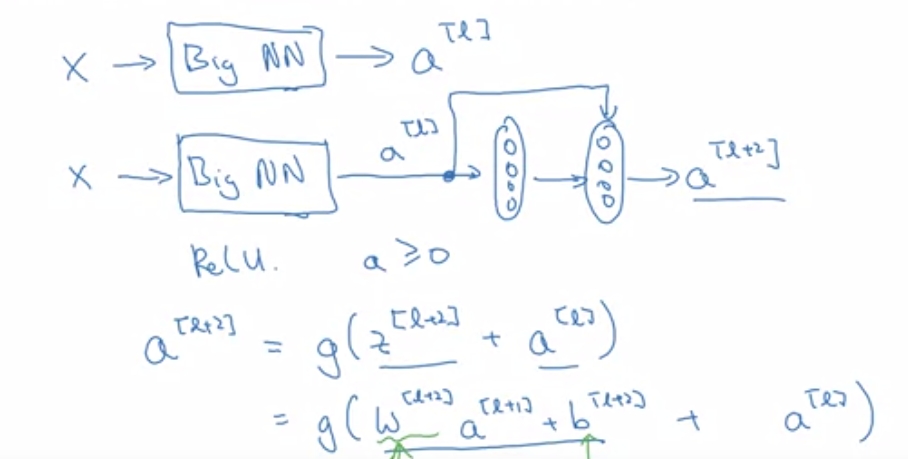 X → Big NN → a^[l]
X → Big NN a^[l] → → a^[l+2]
ReLU. a ≥ 0
a^[l+2] = g(z^[l+2] + a^[l])
= g(W^[l+2] a^[l+1] + b^[l+2] + a^[l])